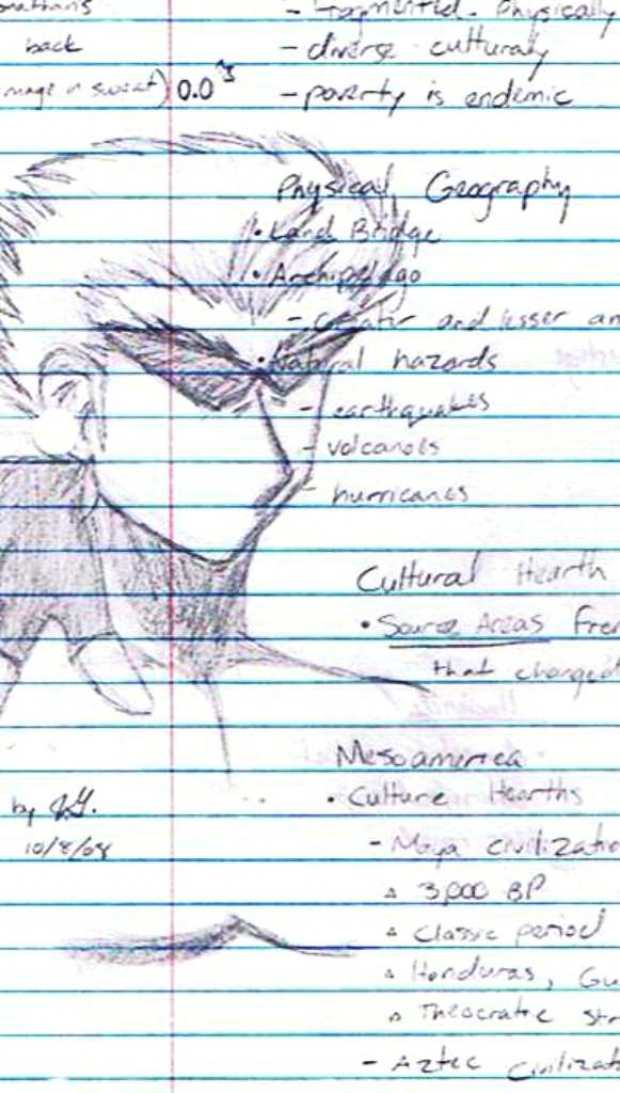 back
in sweat) 0.0
- fragmented. Physically
- diverse culturally
- poverty is endemic
Physical Geography
• Land Bridge
• Archipelago
- Greater and lesser an
• Natural hazards
- earthquakes
- volcanoes
- hurricanes
Cultural Hearth
• Source Areas from
that changed
Mesoamerica
• Culture Hearths
- Maya civilizatio
▵ 3,000 BP
▵ Classic period
▵ Honduras, Gu
▵ Theocratic str
- Aztec Civilizat
by J.G.
10/8/08